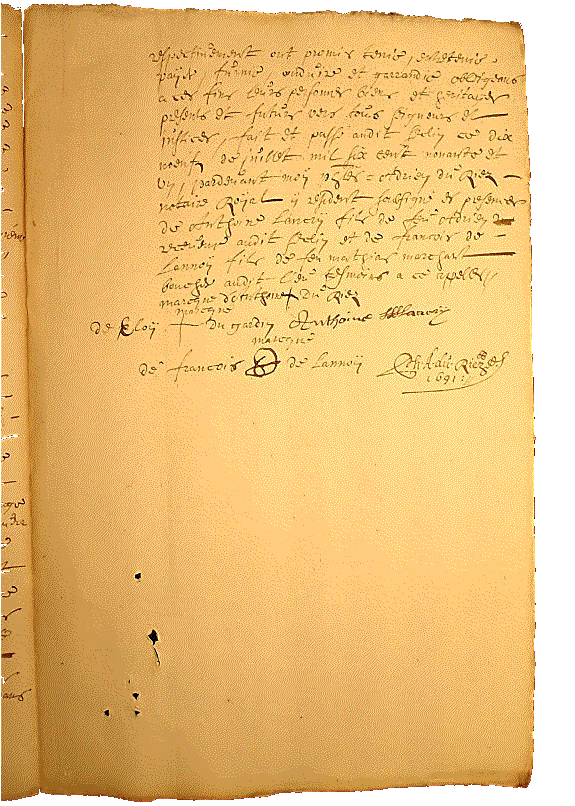 respectivement ont promis tenir, entretenir
payer furnir conduire et garrandir obligeans
a ces fins leurs personnes biens et heritaiges
presents et futurs vers tous seigneurs et
justices, fait et passé audit le dix
noeuf de juillet mil six cent nonante et
un, pardevant moy Adrien du Riez
notaire Royal y resident soubsigné es presences
de Anthoine fils de feu Adrien
receveur audit et de francois de
Lannoy fils de feu mathias marchant
boucher audit lieu tesmoins a ce appelez
marcque d'Anthoine + du Riez
marcque
de Eloy + du gardin Anthoine
marcque
de francois de Lannoy du Riez
1691